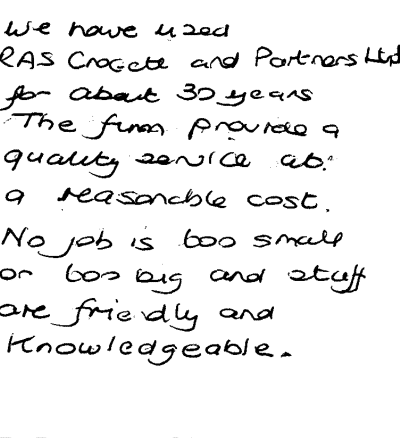 We have used
RAS Crocete and Partners Ltd
for about 30 years
The firm provide a
quality service at
a reasonable cost.
No job is too small
or too big and stuff
are friendly and
Knowledgeable.